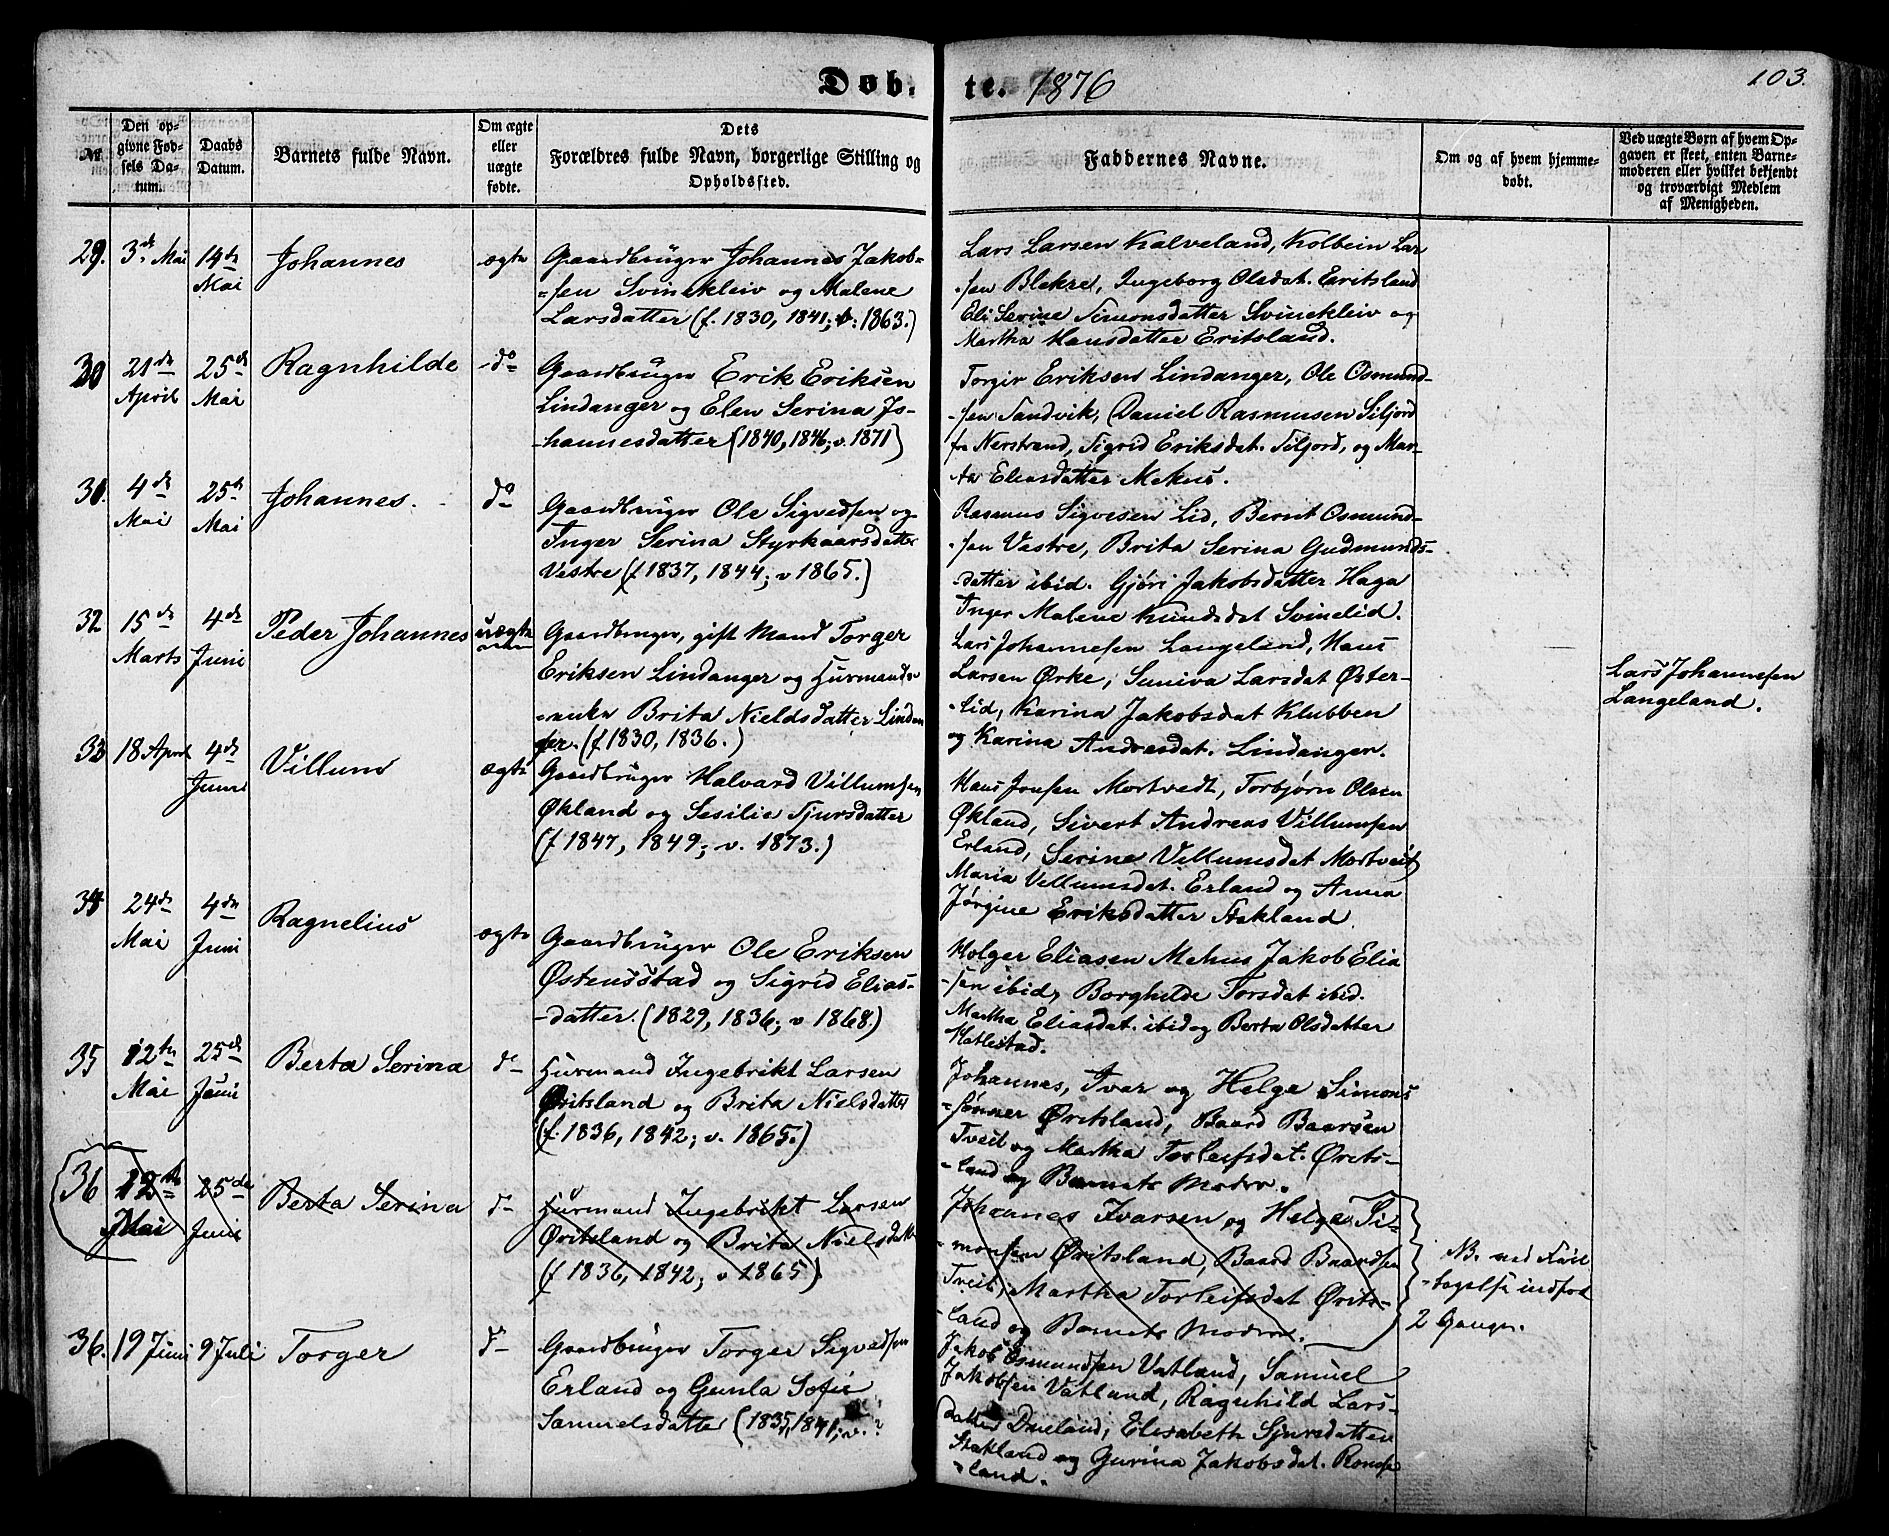 Døb-
te. 1876
103.
№
Den op-
givne Fød-
sels Da-
tum.
Daabs
Datum.
Barnets fulde Navn.
Om ægte
eller
uægte
fødte.
Dets
Forældres fulde Navn, borgerlige Stilling og
Opholdssted.
Faddernes Navne.
Om og af hvem hjemme-
døbt.
Ved uægte Børn af hvem Op-
gaven er skeet, enten Barne-
moderen eller hvilket bekjendt
og troværdigt Medlem
af Menigheden.
29. 3de Mai 14de
Mai
Johannes
ægte
Gaardbruger Johannes Jakob-
-sen Svinekleiv og Malene
Larsdatter (f. 1830, 1841; v: 1863.)
Lars Larsen Kalveland, Kolbein Lar
-sen Blekre, Ingeborg Olsdat. Eritsland
Eli Serine Simonsdatter Svinekleiv og
Martha Hansdatter Eritsland.
30 21de
April
25de
Mai
Ragnhilde
do
Gaardbruger Erik Eriksen
Lindanger og Elen Serina Jo-
-hannesdatter (1840, 1846; v. 1871)
Torger Eriksen Lindanger, Ole Osmund-
-sen Sandvik, Daniel Rasmusen Siljord
fr Nerstrand, Sigrid Eriksdat. Siljord, og Mar-
ta Eliasdatter Mehus.
31. 4de
Mai
25de
Mai
Johannes.
do
Gaardbruger Ole Sigvedsen og
Inger Serina Styrkaarsdatter
Vestre (f 1837, 1844; v 1865.)
Rasmus Sigvesen Lid, Bernt Osmund-
-sen Vestre, Brita Serina Gudmunds-
-datter ibid. Gjøri Jakobsdatter Haga
Inger Malene Knudsdat Svinelid.
32 15de
Marts
4de
Juni
Peder Johannes
uægte
Gaardbruger, gift Mand Torger
Eriksen Lindanger og Huurmands-
-enke Brita Nieldsdatter Lindan
ger. (f 1830, 1836.)
Lars Johannesen Langeland, Hans
Larsen Ørke, Suniva Larsdat Øster-
-lid, Karina Jakobsdat Klubben
og Karina Andreasdat. Lindanger.
Lars Johannesen
Langeland.
33 18 April 4de
Juni
Villum
ægte
Gaardbruger Halvard Villumsen
Økland og Sesilie Sjursdatter
(f 1847, 1849; v. 1873.)
Hans Jonsen Mortvedt, Torbjørn Olsen
Økland, Sivert Andreas Villumsen
Erland, Serine Villumsdat Mortveit
Maria Villumsdat. Erland og Anna
Jørgine Eriksdatter Stakland.
34 24de
Mai
4de
Juni
Ragnelius
ægte
Gaardbruger Ole Eriksen
Østensstad og Sigrid Elias-
-datter. (1829, 1836; v 1868.)
Holger Eliasen Mehus Jakob Elia
-sen ibid, Borghilde Torsdat ibid.
Martha Eliasdat. ibid og Berta Olsdatter
Hatlestad.
35 12te
Mai
25de
Juni
Berta Serina
do
Huurmand Ingebrikt Larsen
Øritsland og Brita Nielsdatter
(f. 1836, 1842; v. 1865.)
Johannes, Ivar og Helge Simons
-sønner Øritsland, Baard Baarsen
Tveit og Martha Torleifsdat.Ørits-
-land og Barnets Moder.
36 12te
Mai
25de
Juni
Berta Serina
do
Huurmand Ingebrikt Larsen
Øritsland og Brita Nielsdatt
(f 1836, 1842; v 1865).
Johannes Ivarsen og Helge Si-
monsen Øritsland, Baard Baardsen
Tveit, Martha Torleifsdat Ørits-
-land og Barnets Moder.
NB. ved Feil
-tagelse indført
2 Gange.
36. 19 Juni 9 Juli Torger
do
Gaardbruger Torger Sigvedsen
Erland og Gunla Sofie
Samuelsdatter (1835, 1841; v. ?
Jakob Osmundsen Vatland, Samuel
Jakobsen Vatland, Ragnhild Lars-
datter Dueland, Elisabeth Sjursdatter
Stakland og Gurina Jakobsdat. Romse
-land.